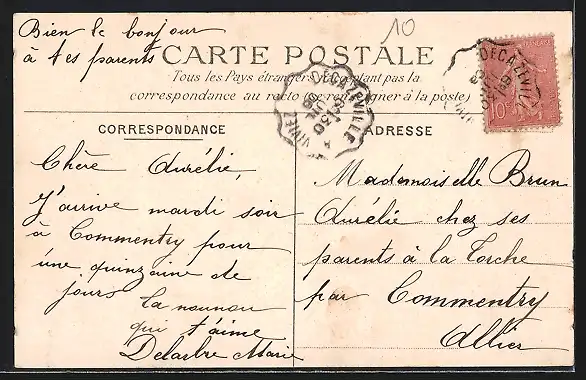 Bien le bonjour
à tes parents
10
CARTE POSTALE
Tous les Pays étrangers n'acceptent pas la
correspondance au recto (se renseigner à la poste)
CORRESPONDANCE
ADRESSE
DECAZEVILLE A VIVIEZ
30
DECAZEVILLE
10
Chère Aurélie,
J'arrive mardi soir
à Commentry pour
une quinzaine de
jours
ta nounou
qui t'aime
Delarbre Marie
Mademoiselle Brun
Aurélie chez ses
parents à la Torche
par Commentry
Allier